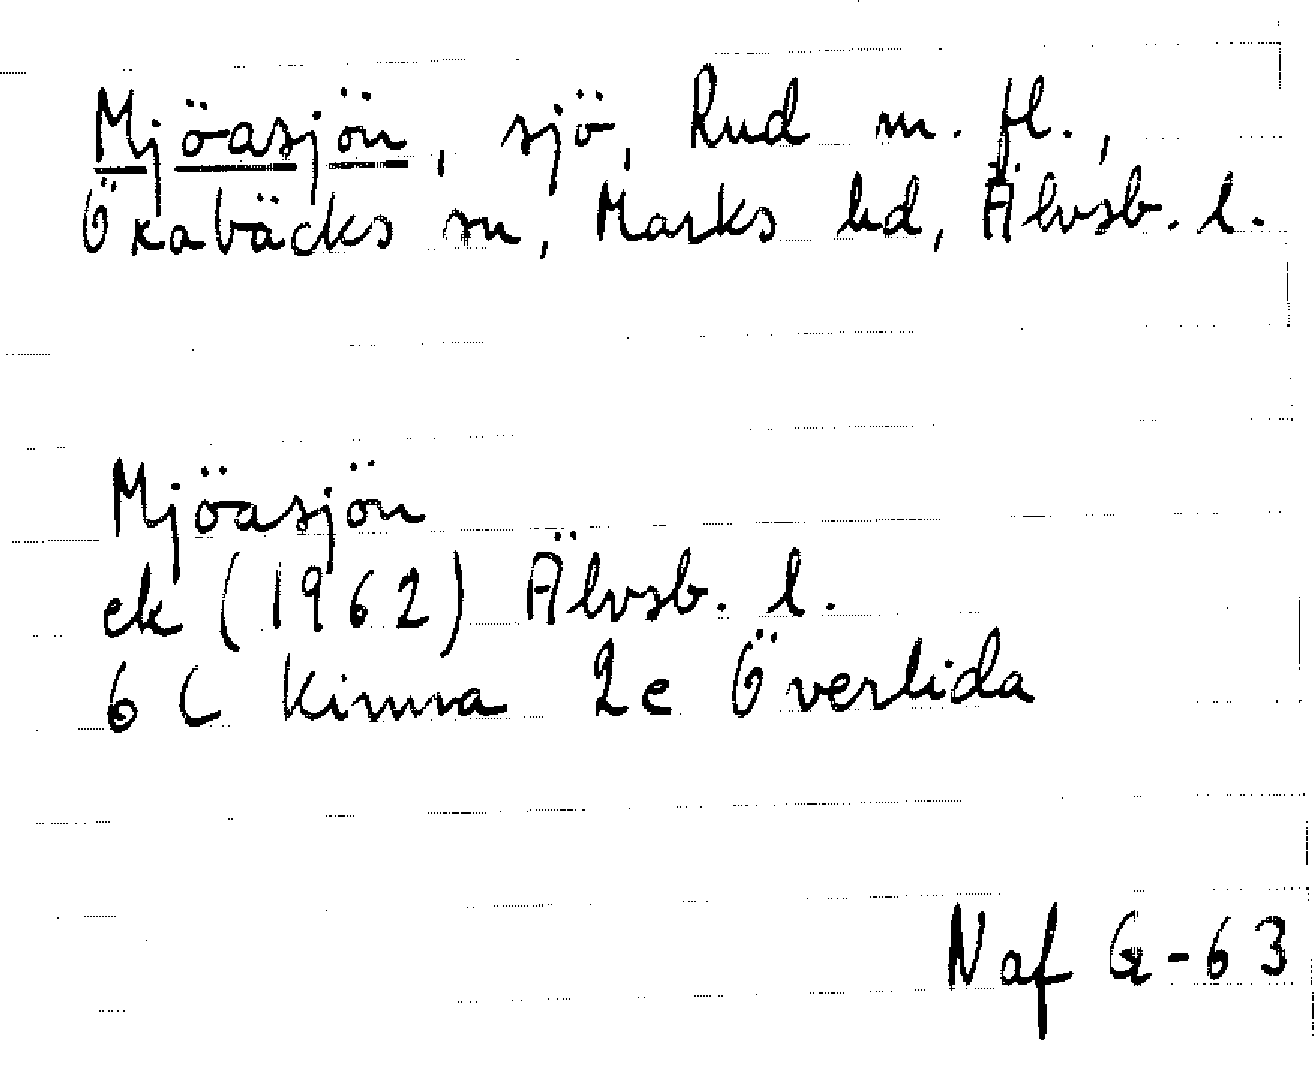 Mjöasjön, sjö, Rud m. fl.,
Öxabäcks sn, Marks hd, Älvsb. l.
Mjöasjön
ek (1962) Älvsb. l.
6 C Kinna 2e Överlida
Naf G-63